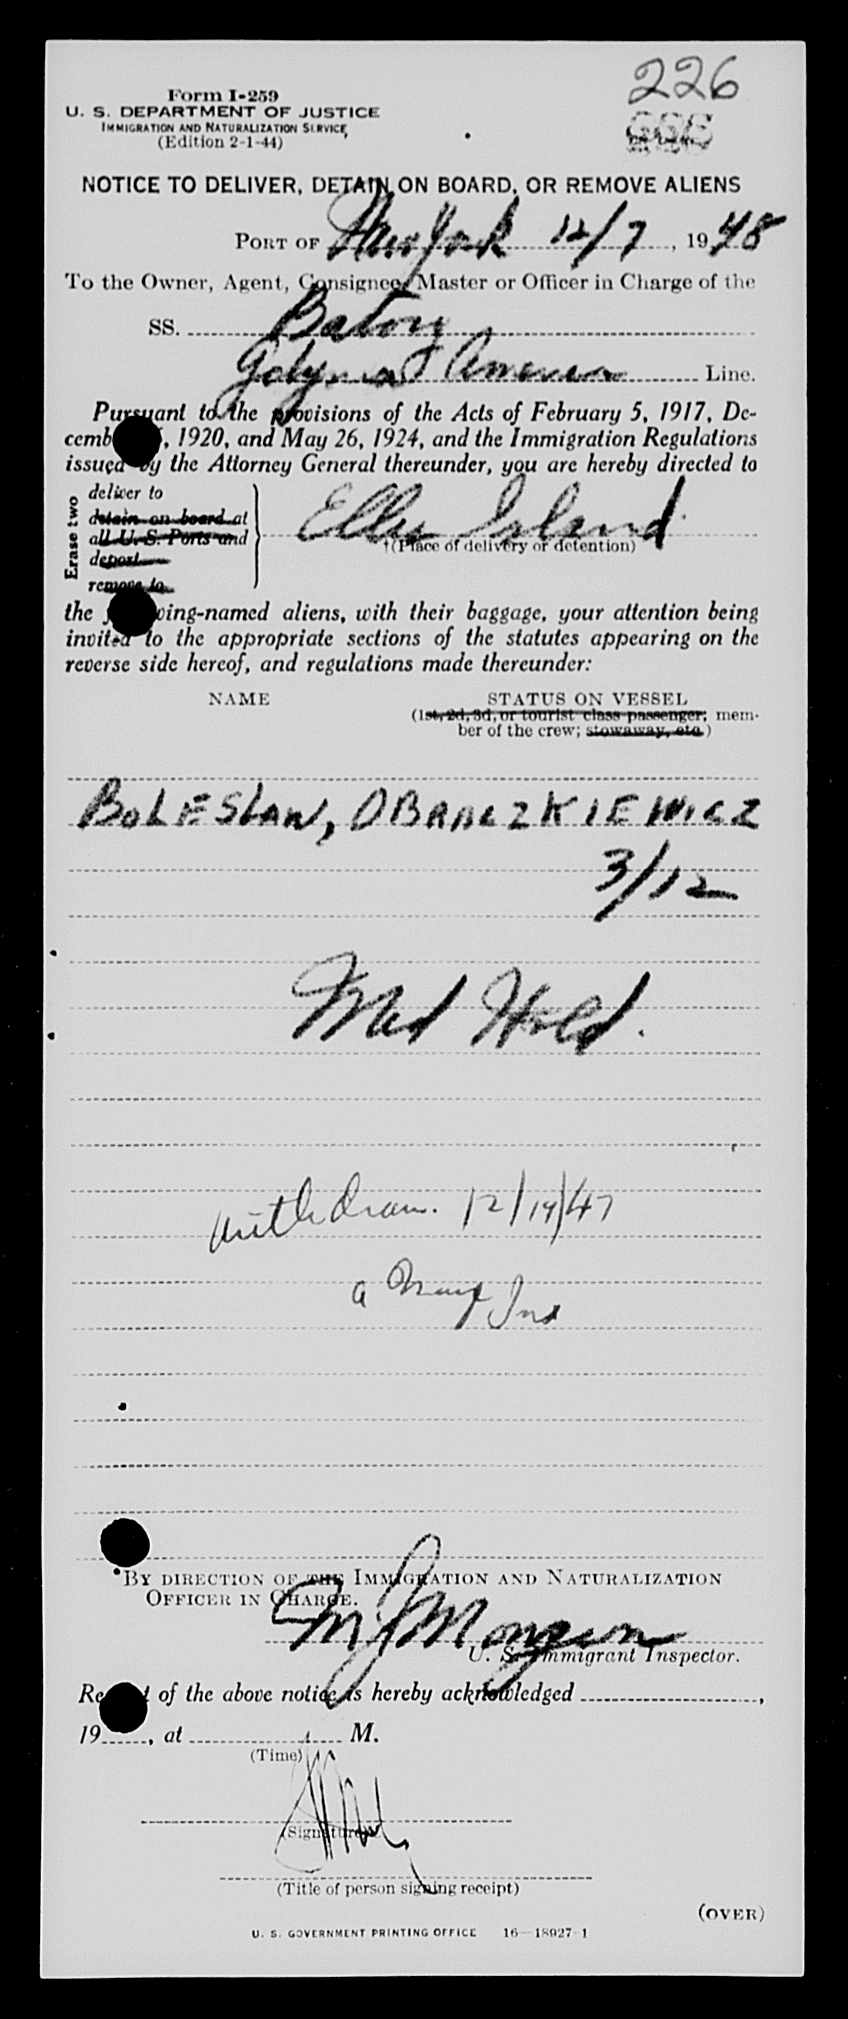 Form I-259
226
U. S. DEPARTMENT OF JUSTICE
IMMIGRATION AND NATURALIZATION SERVICE
(Edition 2-1-44)
NOTICE TO DELIVER, DETAIN ON BOARD, OR REMOVE ALIENS
PORT OF New York 12/7, 1948
To the Owner, Agent, Consignee, Master or Officer in Charge of the
SS. Batory
Gdynia America Line.
Pursuant to the provisions of the Acts of February 5, 1917, De-
cemb 5, 1920, and May 26, 1924, and the Immigration Regulations
issued by the Attorney General thereunder, you are hereby directed to
Erase two
deliver to
detain on board at
all U. S. Ports and
deport
remove to
Ellis Island
†(Place of delivery or detention)
the f wing-named aliens, with their baggage, your attention being
invited to the appropriate sections of the statutes appearing on the
reverse side hereof, and regulations made thereunder:
NAME
STATUS ON VESSEL
(1st, 2d, 3d, or tourist class passenger; mem-
ber of the crew; stowaway, etc.)
BOLESLAW, OBRACZKIEWICZ
3/12
Med Hold.
withdrawn. 12/19/47
BY DIRECTION OF THE IMMIGRATION AND NATURALIZATION
OFFICER IN CHARGE.
U. S. Immigrant Inspector.
Re t of the above notice is hereby acknowledged ,
19 , at M.
(Time)
(Signature)
(Title of person signing receipt)
(OVER)
U. S. GOVERNMENT PRINTING OFFICE 16—18927-1